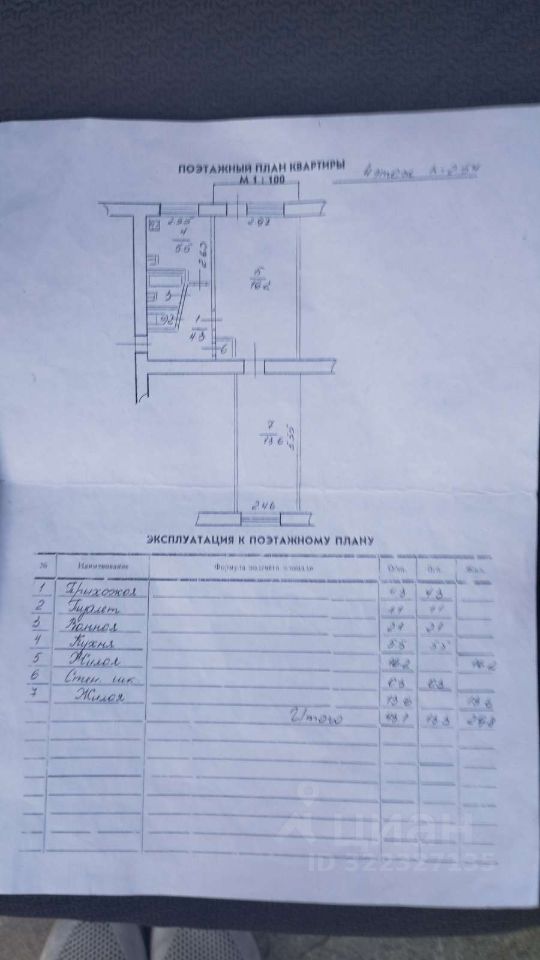 ПОЭТАЖНЫЙ ПЛАН КВАРТИРЫ
М 1 : 100
4 этаж
2.62
4
5.5
2.63
5
16.2
3
1
4.3
6
7
13.6
5.55
2.46
ЭКСПЛУАТАЦИЯ К ПОЭТАЖНОМУ ПЛАНУ
№ Наименование Формула подсчета площади Жил.
1 Прихожая 4.3 4.3
2 Туалет
3 Ванная
4 Кухня 5.5 5.5
5 Жилая 16.2 16.2
6 Стен. шк.
7 Жилая 13.6 13.6
Итого 13.3 29.8
циан
ID 322327135